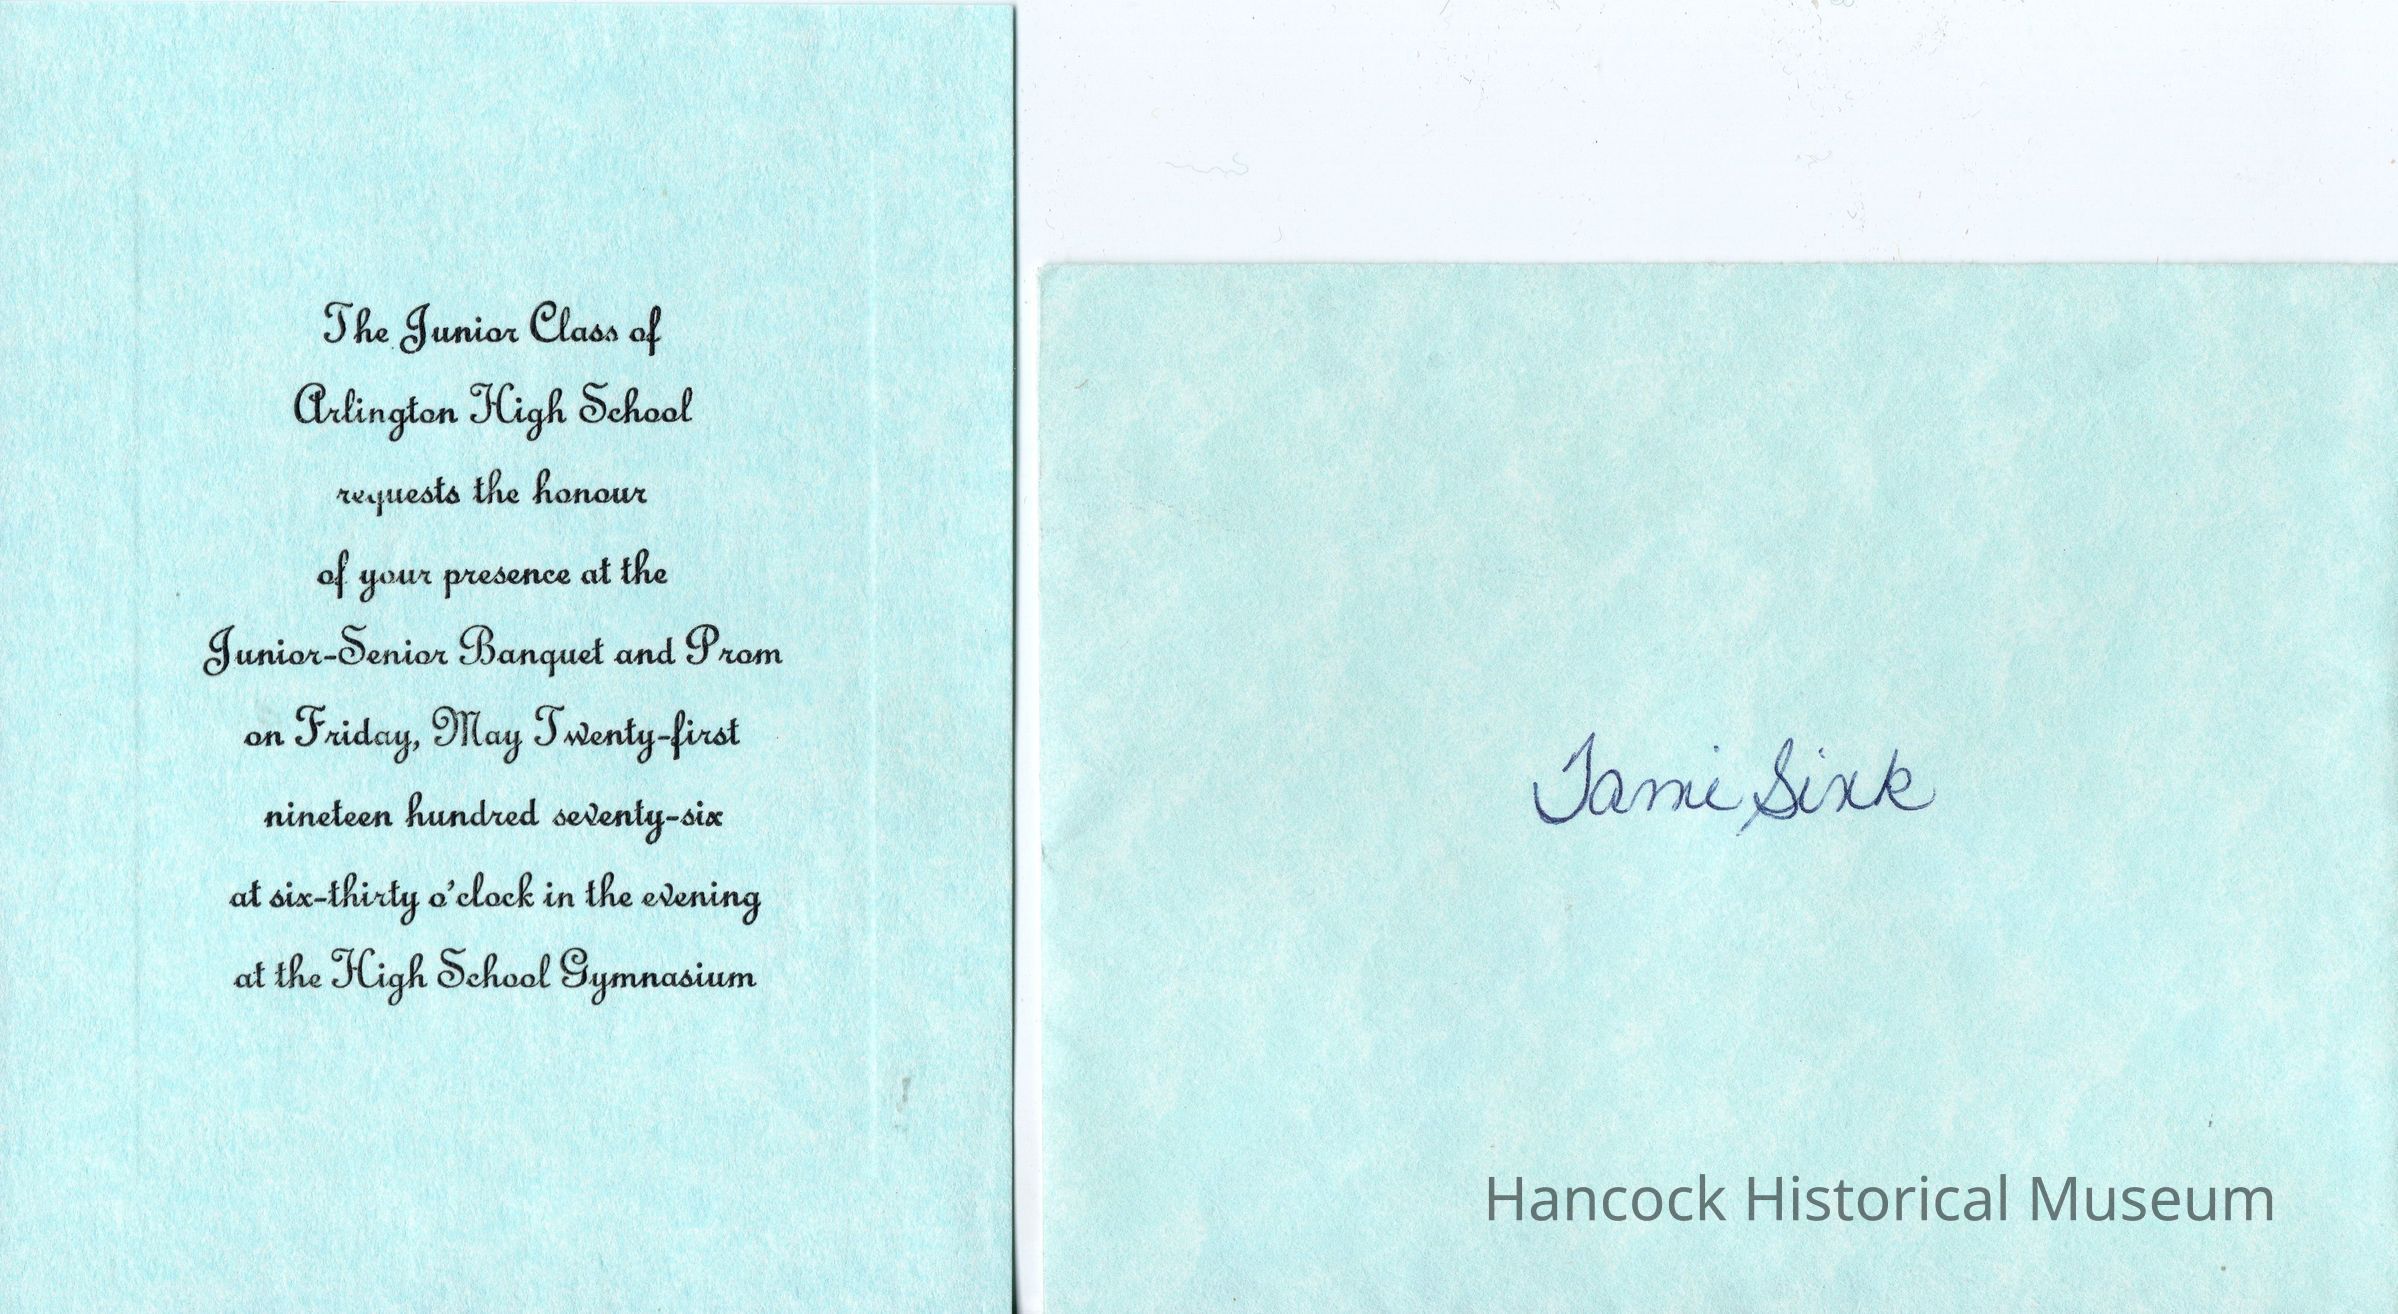 The Junior Class of
Arlington High School
requests the honour
of your presence at the
Junior-Senior Banquet and Prom
on Friday, May Twenty-first
nineteen hundred seventy-six
at six-thirty o'clock in the evening
at the High School Gymnasium
Tami Sink
Hancock Historical Museum